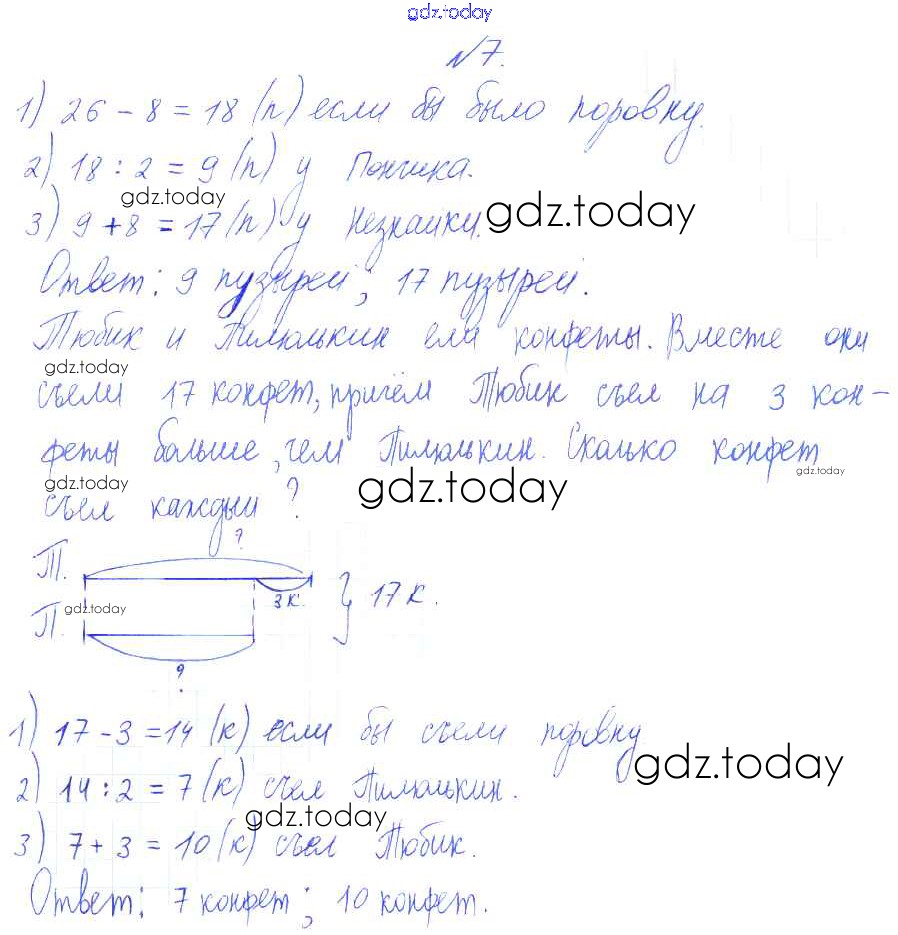 gdz.today
№7.
1) 26 - 8 = 18 (п) если бы было поровну.
2) 18 : 2 = 9 (п) у Пончика.
gdz.today
3) 9 + 8 = 17 (п) у Незнайки. gdz.today
Ответ: 9 пузырей; 17 пузырей.
Тюбик и Пилюлькин ели конфеты. Вместе они
gdz.today
съели 17 конфет, причём Тюбик съел на 3 кон-
феты больше, чем Пилюлькин. Сколько конфет
gdz.today
gdz.today gdz.today
съел каждый ?
?
Т.
3 к.
} 17 к.
gdz.today
П.
?
1) 17 - 3 = 14 (к) если бы съели поровну
gdz.today
2) 14 : 2 = 7 (к) съел Пилюлькин.
gdz.today
3) 7 + 3 = 10 (к) съел Тюбик.
Ответ: 7 конфет; 10 конфет.